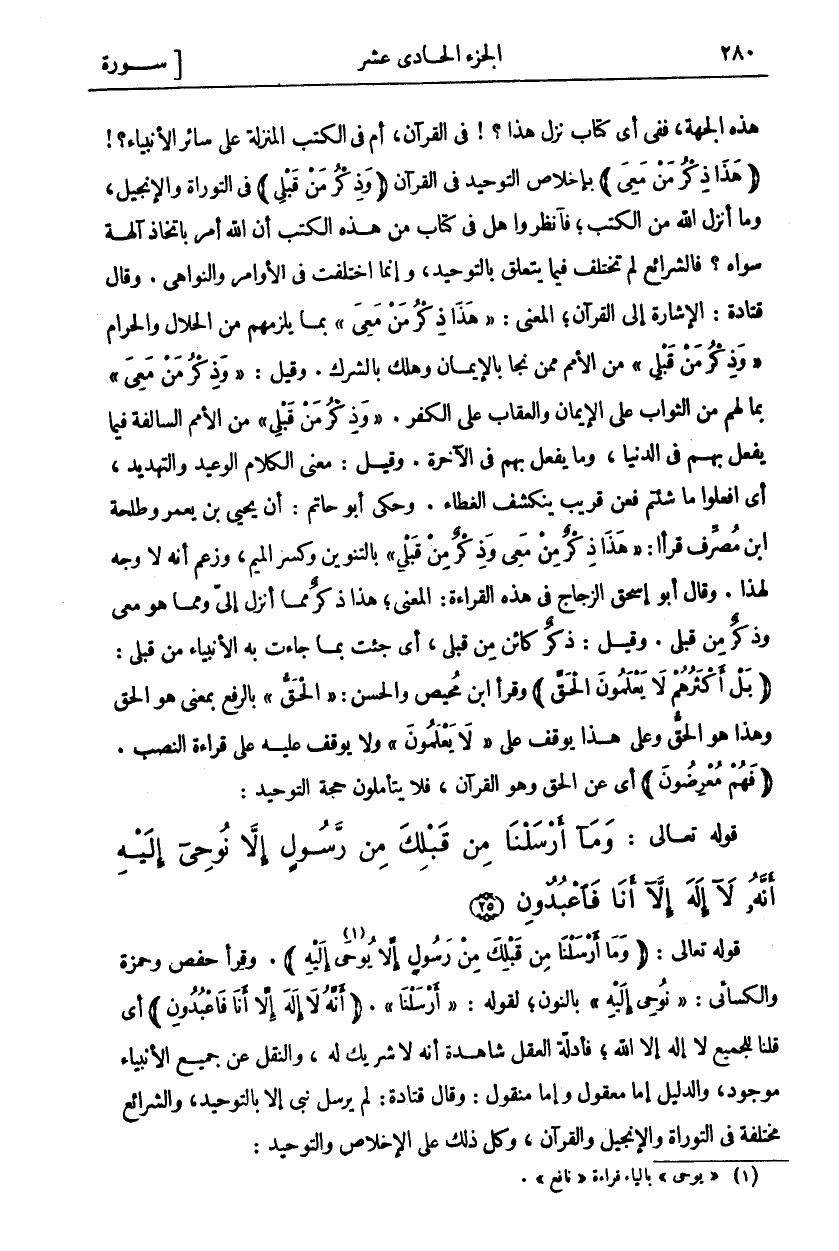 ٢٨٠ الجزء الحادى عشر [ ســـورة
هذه الجهة، ففى أى كتاب نزل هذا ؟ ! فى القرآن، أم فى الكتب المنزلة على سائر الأنبياء؟ !
﴿ هَذَا ذِكْرُ مَنْ مَعِىَ ﴾ بإخلاص التوحيد فى القرآن ﴿ وَذِكْرُ مَنْ قَبْلِي ﴾ فى التوراة والإنجيل،
وما أنزل الله من الكتب؛ فآنظروا هل فى كتاب من هــذه الكتب أن الله أمر باتخاذ آلهة
سواه ؟ فالشرائع لم تختلف فيما يتعلق بالتوحيد، وإنما اختلفت فى الأوامر والنواهى . وقال
قتادة : الإشارة إلى القرآن؛ المعنى : « هَذَا ذِكْرُ مَنْ مَعِىَ » بمــا يلزمهم من الحلال والحرام
« وَذِكْرُ مَنْ قَبْلِي » من الأمم ممن نجا بالإيمــان وهلك بالشرك . وقيل : « وَذِكْرُ مَنْ مَعِىَ »
بما لهم من الثواب على الإيمان والعقاب على الكفر . « وَذِكْرُ مَنْ قَبْلِي» من الأمم السالفة فيما
يفعل بهــم فى الدنيا ، وما يفعل بهم فى الآخرة . وقيــل : معنى الكلام الوعيد والتهديد ،
أى افعلوا ما شئتم فعن قريب ينكشف الغطاء . وحكى أبو حاتم : أن يحيى بن يعمر وطلحة
ابن مُصَرِّف قرأا : « هَذَا ذِكْرٌ مِنْ مَعِى وَذِكْرٌ مِنْ قَبْلِي» بالتنوين وكسر الميم، وزعم أنه لا وجه
لهذا . وقال أبو إسحق الزجاج فى هذه القراءة: المعنى؛ هذا ذكرٌ ممــا أنزل إلىّ وممــا هو معى
وذكرٌ مِن قبلى . وقيــل : ذكرٌ كائن مِن قبلى ، أى جئت بمــا جاءت به الأنبياء من قبلى :
﴿ بَلْ أَكْثَرُهُمْ لَا يَعْلَمُونَ الْحَقَّ ﴾ وقرأ ابن مُحيصن والحسن : « الْحَقُّ » بالرفع بمعنى هو الحق
وهذا هو الحقُّ وعلى هــذا يوقف على « لَا يَعْلَمُونَ » ولا يوقف عليــه على قراءة النصب .
﴿ فَهُمْ مُعْرِضُونَ ﴾ أى عن الحق وهو القرآن ، فلا يتأملون حجة التوحيد :
قوله تعــالى : وَمَآ أَرْسَلْنَا مِن قَبْلِكَ مِن رَّسُــولٍ إِلَّا نُوحِىٓ إِلَيْــهِ
أَنَّهُۥ لَآ إِلَهَ إِلَّآ أَنَا فَٱعْبُدُونِ ۝٢٥
قوله تعالى : ﴿ وَمَا أَرْسَلْنَا مِن قَبْلِكَ مِنْ رَسُولٍ إِلَّا يُوحَى(١) إِلَيْهِ ﴾ . وقرأ حفص وحمزة
والكسائى : « نُوحِى إِلَيْهِ » بالنون؛ لقوله : « أَرْسَلْنَا » . ﴿ أَنَّهُ لَا إِلَهَ إِلَّا أَنَا فَاعْبُدُونِ ﴾ أى
قلنا للجميع لا إله إلا الله ؛ فأدلّة العقل شاهــدة أنه لا شريك له ، والنقل عن جميــع الأنبياء
موجود، والدليل إما معقول وإما منقول : وقال قتادة: لم يرسل نبى إلا بالتوحيد، والشرائع
مختلفة فى التوراة والإنجيل والقرآن ، وكل ذلك على الإخلاص والتوحيد :
(١) « يوحى » بالياء قراءة « نافع » .